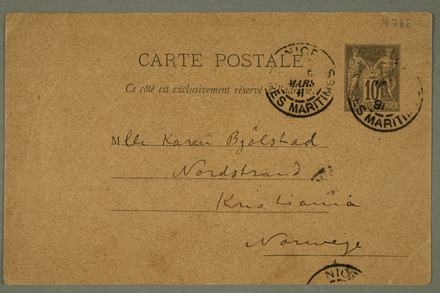 N 766
CARTE POSTALE
Ce côté est exclusivement réservé
NICE
MARS
91
ES MARITIMES
POSTES
10
91
ES MARITIM
Mlle Karen Bjölstad
Nordstrand
Kristiania
Norwege
NICE